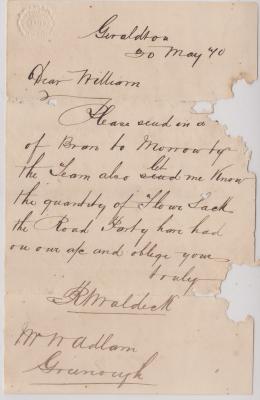 Geraldton
30 May 70
Dear William
Please send in a
of Bran to Morrow by
the Team also send let me Know
the quantity of Flour Sack
the Road Party have had
on our a/c and oblige yours
truly
R Waldeck
Mr W Adlam
Greenough